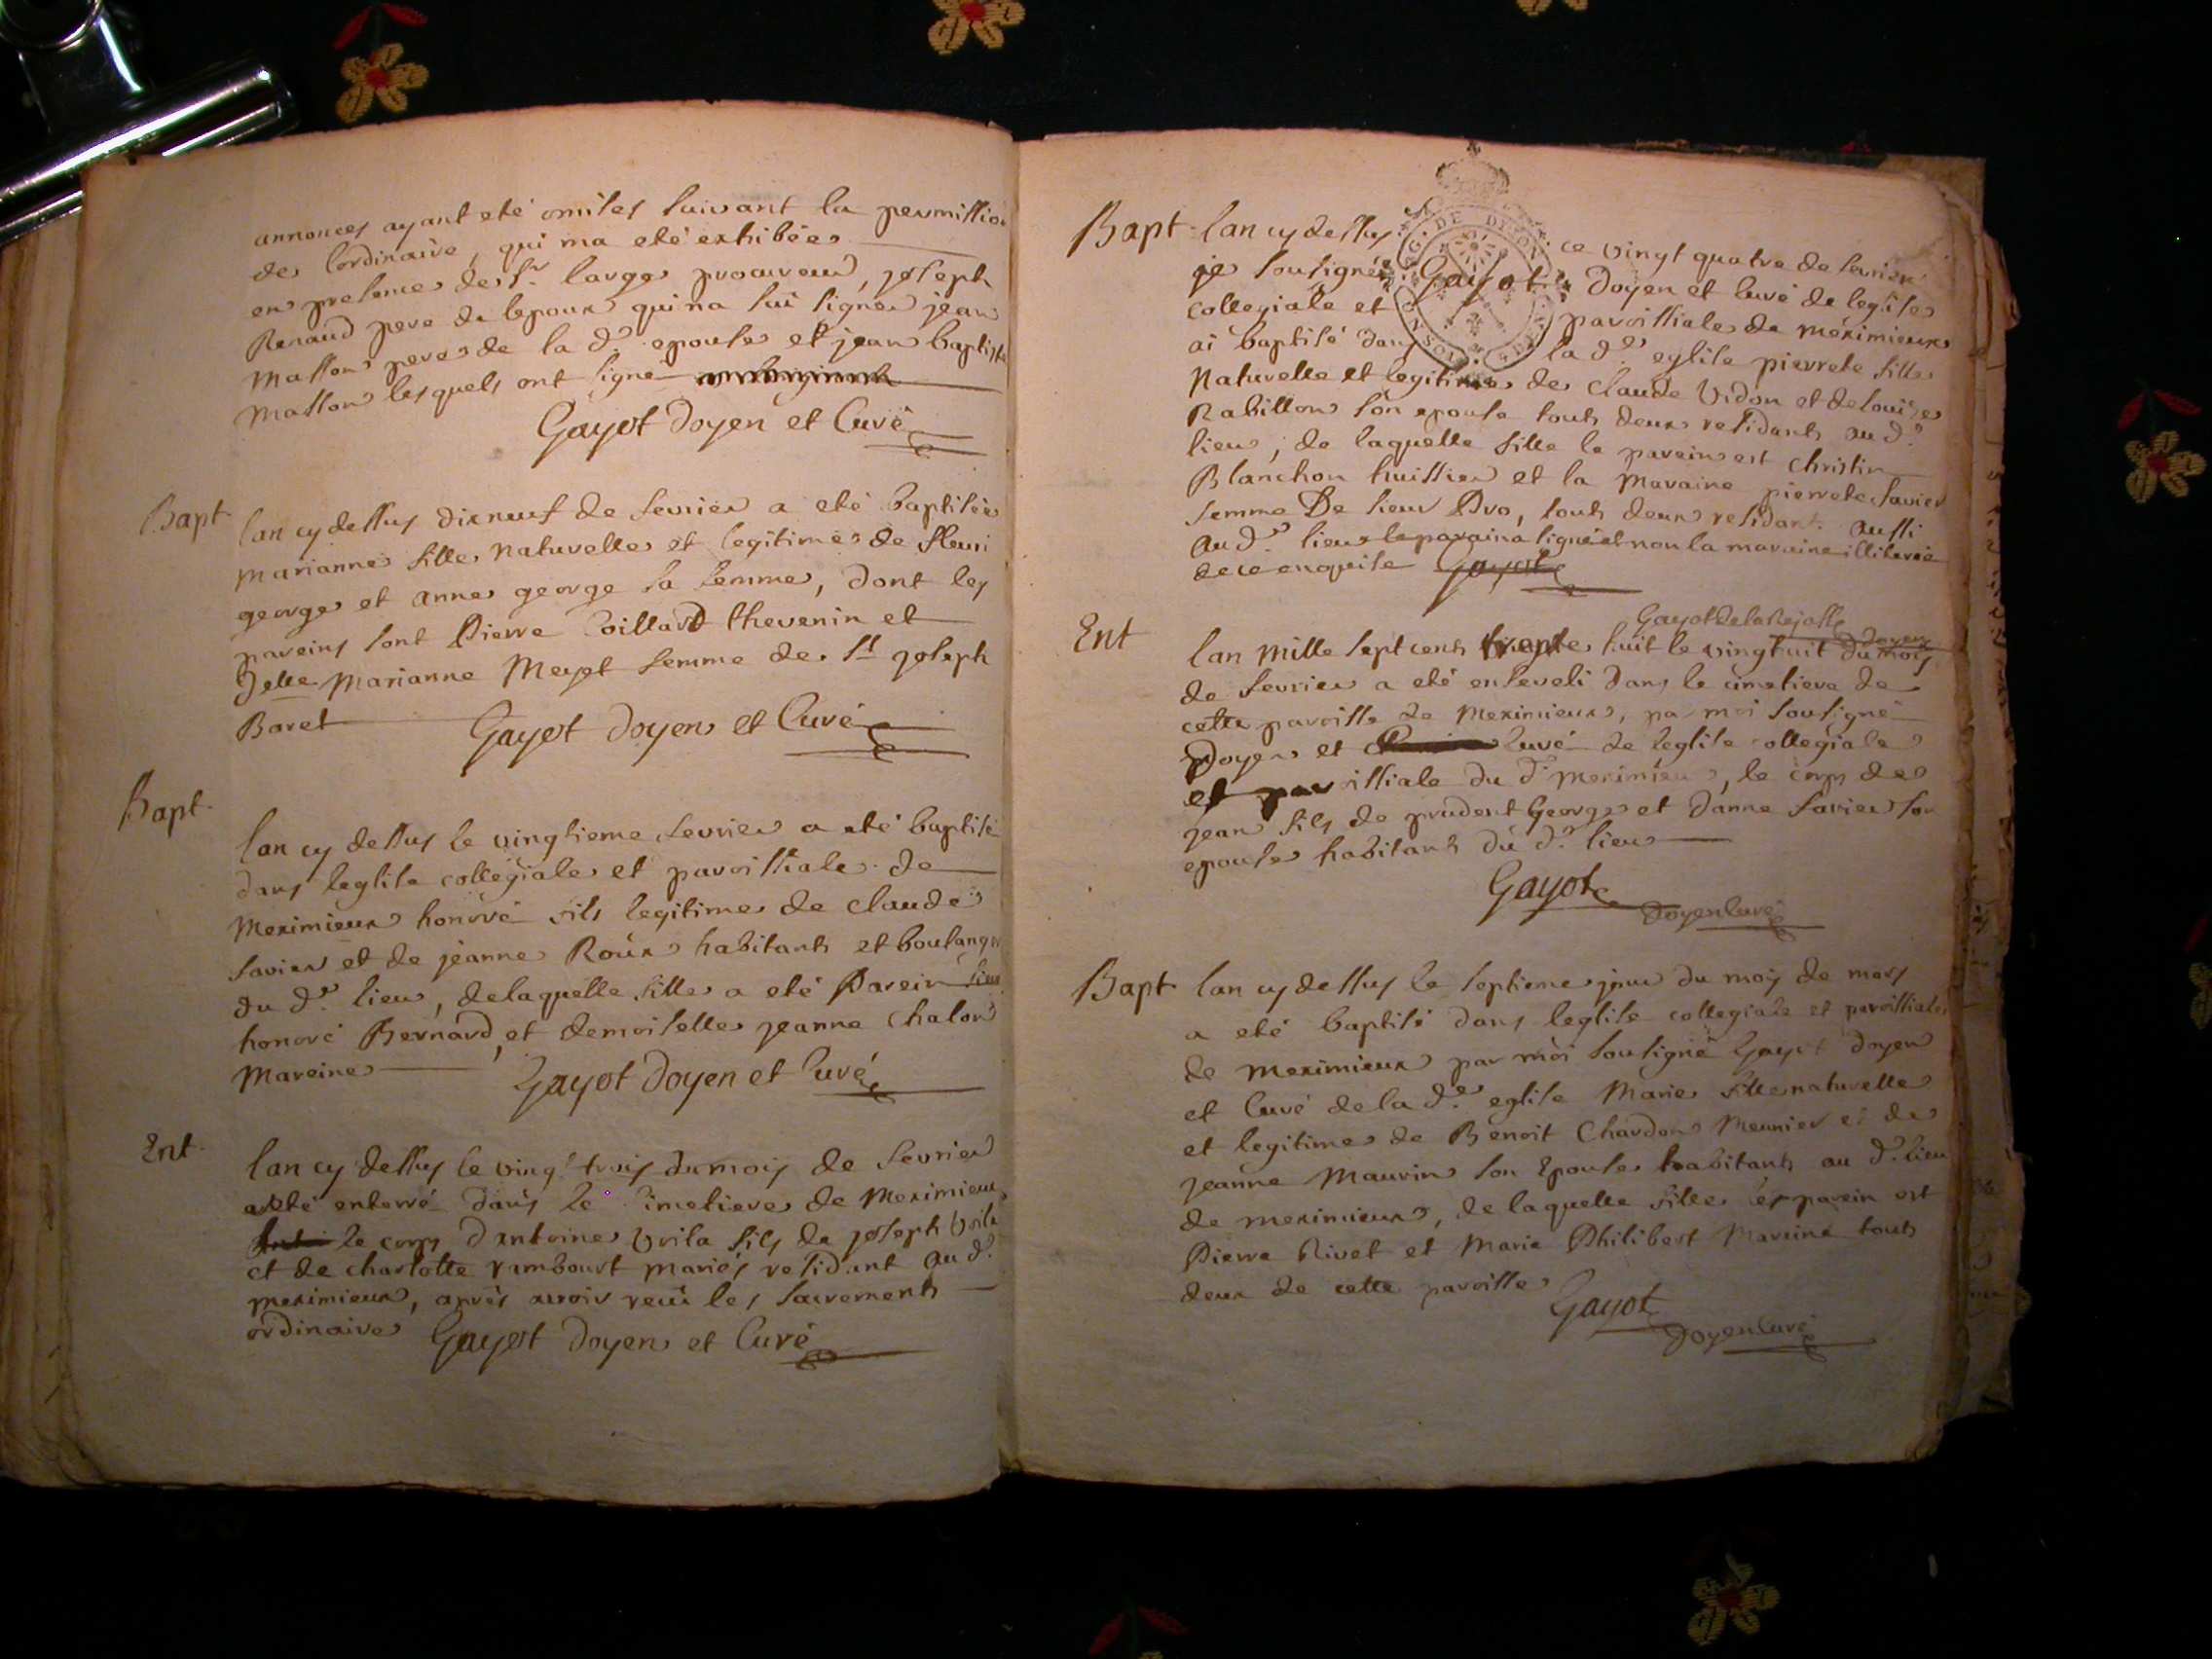 annonces ayant eté omises suivant la permission
de lordinaire, qui ma eté exhibée
en presence de Sr. large procureur, joseph
Renaud pere de lepoux qui na sui signer jean
Masson pere de la de. epouse et jean baptiste
Masson lesquels ont signé
Gayot Doyen et Curé
Bapt lan cy dessus dixneuf de fevrier a eté baptisée
marianne fille naturelle et legitime de fleuri
george et anne george sa femme, dont les
pareins sont Pierre Coillard thevenin et
Delle Marianne Meyet femme de Sr joseph
Boret Gayot Doyen et Curé
Bapt. lan cy dessus le vingtieme fevrier a eté baptisé
dans leglise collegiale et paroissiale de
Meximieux honoré fils legitime de claude
favier et de jeanne Roux habitants et boulanger
du d. lieu, delaquelle fille a eté Parein sieur
honoré Bernard, et demoiselle jeanne Chalon
Mareine Gayot Doyen et Curé
Ent. lan cy dessus le vingt trois du mois de fevrier
a eté enterré dans le cimetiere de Meximieux
le corps dantoine Voila fils de joseph Voila
et de charlotte rambourt mariés residant au d.
meximieux, aprés avoir receu les sacrements
ordinaire Gayot Doyen et Curé
G. DE DIJON
Bapt lan cy dessus ce vingt quatre de fevrier
je sousigné Gayot Doyen et Curé de leglise
collegiale et paroissiale de meximieux
ai baptisé dans la de. eglise pierrete fille
Naturelle et legitime de Claude Vidon et de louise
Rabillon son epouse touts deux residants au d.
lieu, de laquelle fille le parein est Christin
Blanchon huissier et la Maraine pierrete favier
femme De sieur Dro, touts deux residant aussi
au d. lieu le paraina signé et non la maraine illiterée
de ce enquise Gayot
Gayot De la Rejasse doyen
Ent lan mille sept cents trente huit le vingt huit du mois
de fevrier a eté enseveli dans le cimetiere de
cette paroisse de Meximieux, par moi sousigné
Doyen et Curé de leglise collegiale
et paroissiale du d. meximieux, le corps de
jean fils de prudent George et danne favier son
epouse habitants du d. lieu
Gayot
Doyen Curé
Bapt lan cy dessus le septieme jour du mois de mars
a eté baptisé dans leglise collegiale et paroissiale
de meximieux par moi sousigné Gayot Doyen
et Curé de la de. eglise Marie fille naturelle
et legitime de Benoit Chardon Meunier et de
jeanne Maurin son Epouse habitants au d. lieu
de meximieux, de laquelle fille le parein est
Pierre Rivet et Marie Philibert Mareine touts
deux de cette paroisse
Gayot
Doyen Curé